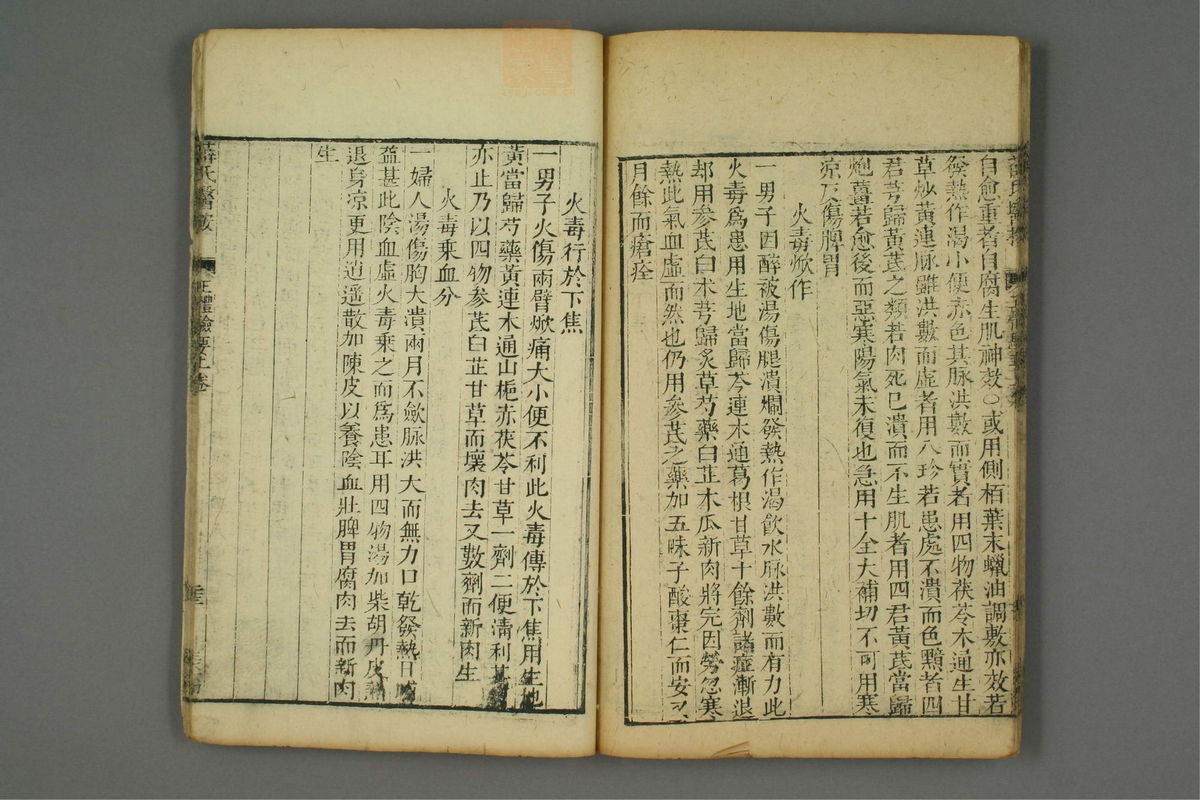 自愈重者自腐生肌神效○或用側栢葉末蠟油調敷亦效若
發熱作渴小便赤色其脉洪數而實者用四物茯苓木通生甘
草炒黃連脉雖洪數而虛者用八珍若患處不潰而色黯者四
君芎歸黃芪之類若肉死已潰而不生肌者用四君黃芪當歸
炮薑若愈後而惡寒陽氣未復也急用十全大補切不可用寒
凉反傷脾胃
火毒焮作
一男子因醉被湯傷腿潰爛發熱作渴飲水脉洪數而有力此
火毒爲患用生地當歸芩連木通葛根甘草十餘劑諸症漸退
却用參芪白木芎歸炙草芍藥白芷木瓜新肉將完因勞忽寒
熱此氣血虛而然也仍用參芪之藥加五味子酸棗仁而安又
月餘而瘡痊
火毒行於下焦
一男子火傷兩臂焮痛大小便不利此火毒傳於下焦用生地
黃當歸芍藥黃連木通山梔赤茯苓甘草一劑二便清利其
亦止乃以四物參芪白芷甘草而壞肉去又數劑而新肉生
火毒乘血分
一婦人湯傷胸大潰兩月不斂脉洪大而無力口乾發熱日晡
益甚此陰血虛火毒乘之而爲患耳用四物湯加柴胡丹皮
退身凉更用逍遥散加陳皮以養陰血壯脾胃腐肉去而新肉
生
薛氏醫
正體類要上卷